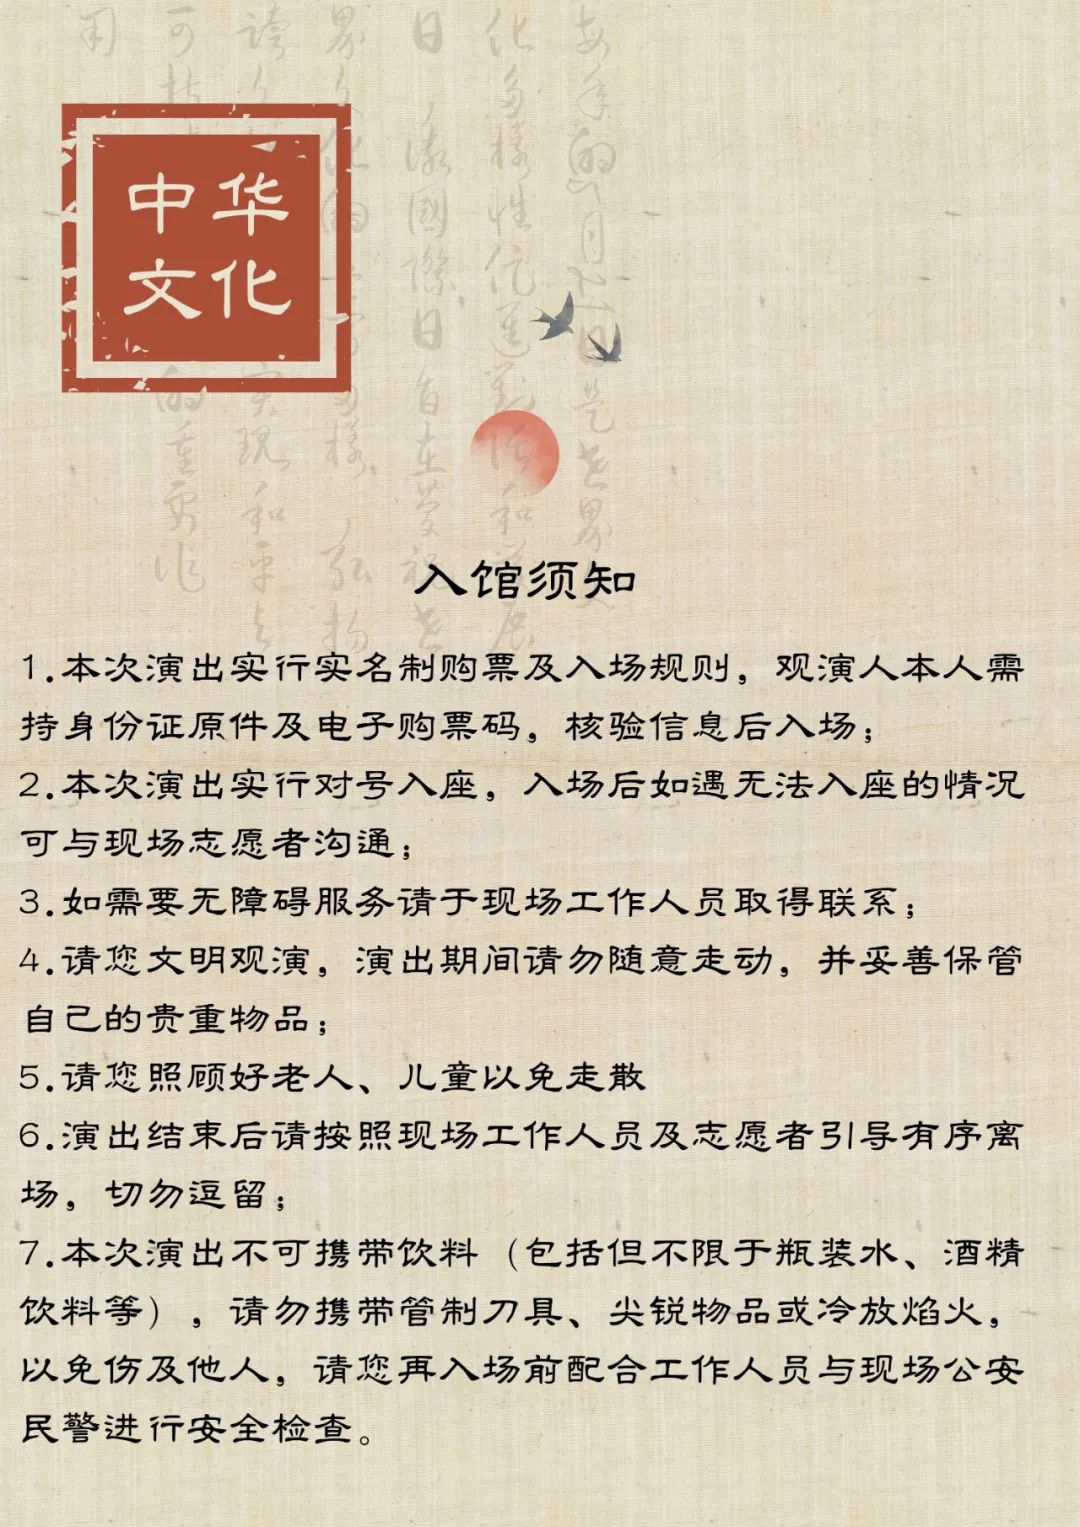 中华
文化
入馆须知
1.本次演出实行实名制购票及入场规则，观演人本人需
持身份证原件及电子购票码，核验信息后入场；
2.本次演出实行对号入座，入场后如遇无法入座的情况
可与现场志愿者沟通；
3.如需要无障碍服务请于现场工作人员取得联系；
4.请您文明观演，演出期间请勿随意走动，并妥善保管
自己的贵重物品；
5.请您照顾好老人、儿童以免走散
6.演出结束后请按照现场工作人员及志愿者引导有序离
场，切勿逗留；
7.本次演出不可携带饮料（包括但不限于瓶装水、酒精
饮料等），请勿携带管制刀具、尖锐物品或冷放焰火，
以免伤及他人，请您再入场前配合工作人员与现场公安
民警进行安全检查。